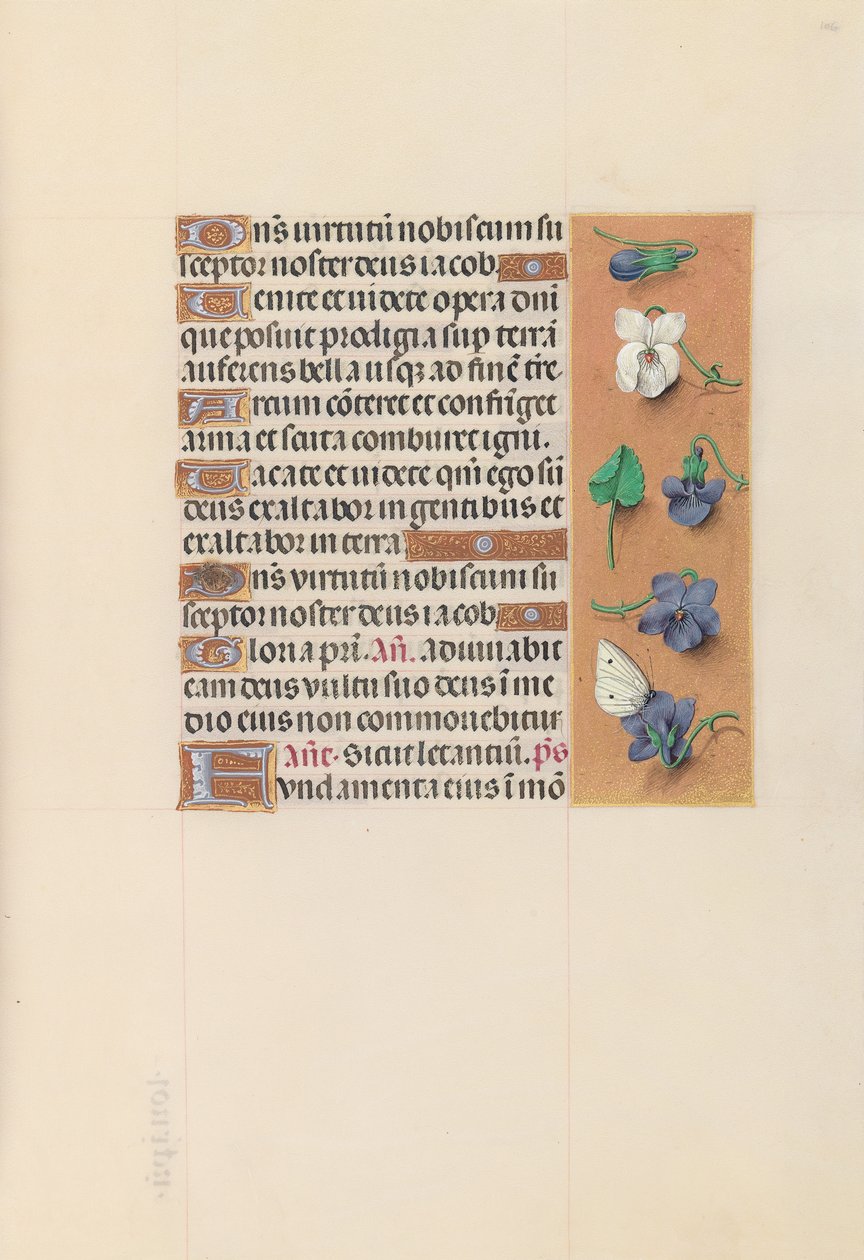 106
Dn̄s uirtutū nobiscum su
sceptor noster deus iacob
Uenite et uidete opera dn̄i
que posuit prodigia sup terrā
auferens bella usqꝫ ad finē tr̄e
Arcum cōteret et confr̄nget
arma et scuta comburet igni.
Uacate et uidete qm̄ ego sū
deus exaltabor in gentibus et
exaltabor in terra
Dn̄s virtutū nobiscum su
sceptor noster deus iacob
Gloria pr̄i. An̄. adiuuabit
eam deus vultu suo deus ī me
dio eius non commouebitur
An̄e. Sicut letantiū. p̄s
Fundamenta eius ī mō